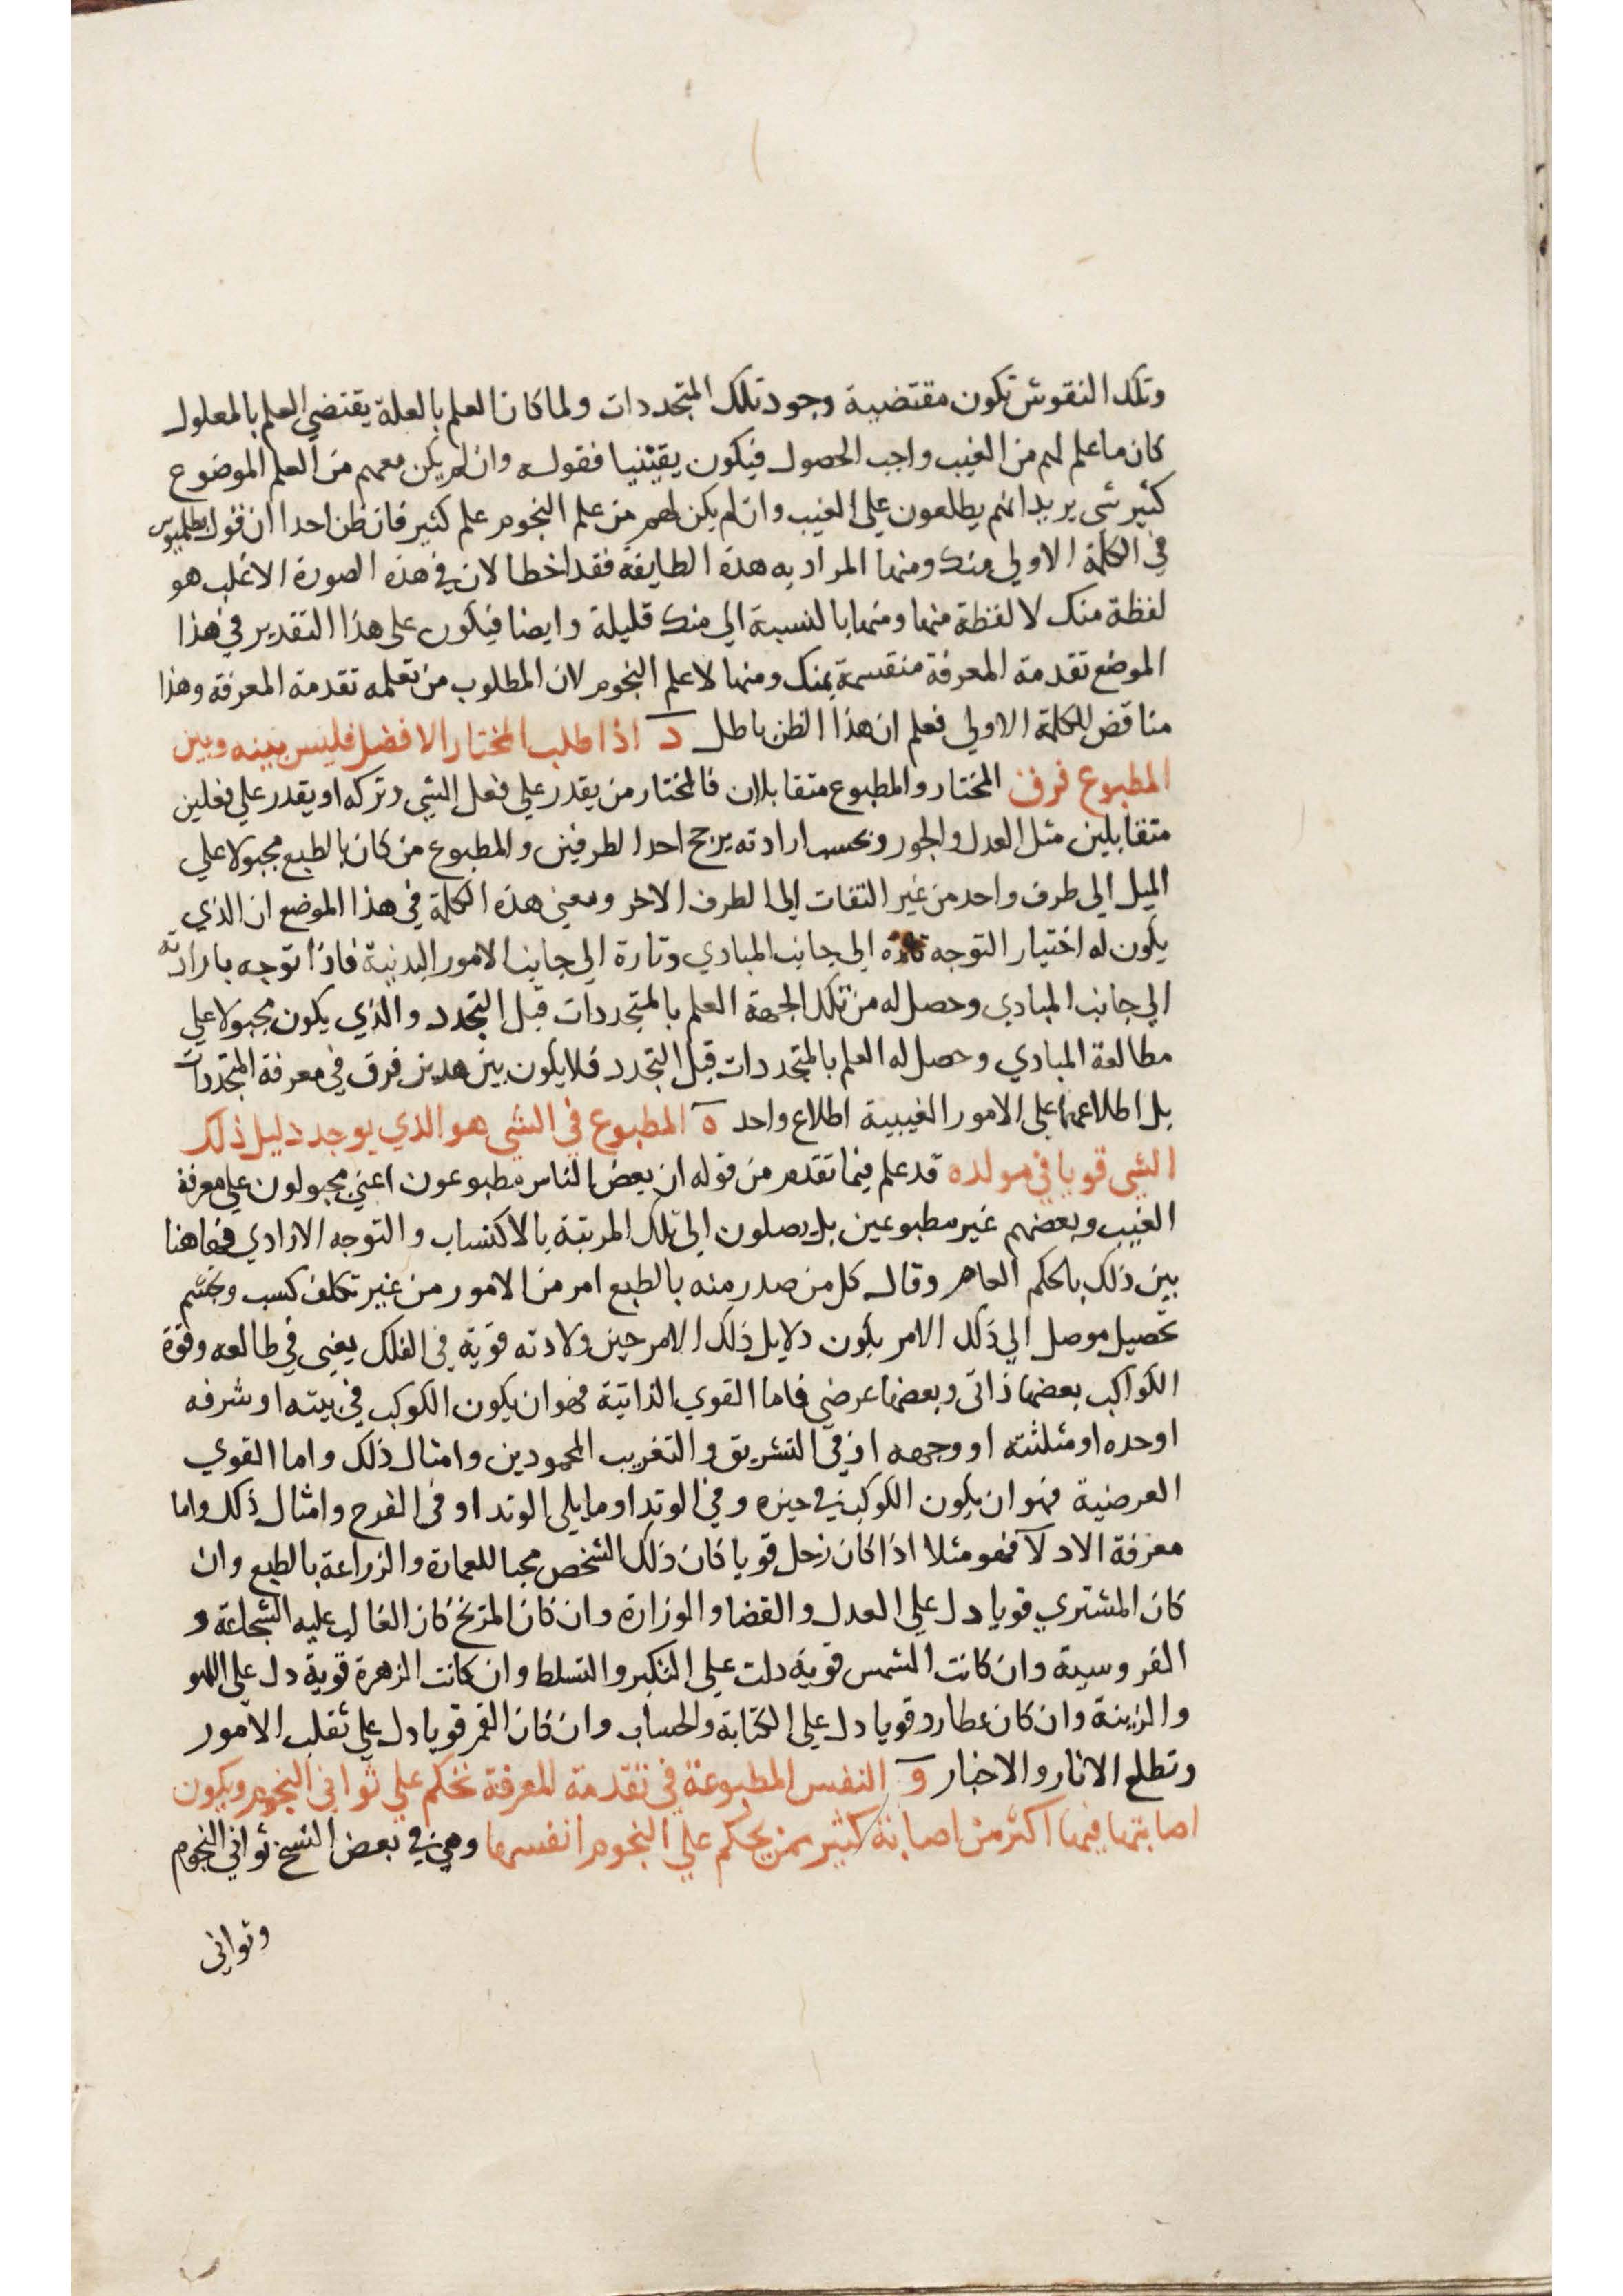 وتلك النقوش تكون مقتضية وجود تلك المتجددات ولما كان العلم بالعلة يقتضي العلم بالمعلول
كان ما علم لهم من الغيب واجب الحصول فيكون يقينيا فقوله وان لم يكن معهم من العلم الموضوع
كثير شي يريد انهم يطلعون علي الغيب وان لم يكن لهم من علم النجوم علم كثير فان ظن احدا ان قول بطلميوس
في الكلمة الاولي منك ومنها المراد به هذه الطايفة فقد اخطا لان في هذه الصورة الاغلب هو
لفظة منك لا لفظة منها ومنها بالنسبة الي منك قليلة وايضا فيكون علي هذا التقدير في هذا
الموضع تقدمة المعرفة منقسمة بمنك ومنها لا علم النجوم لان المطلوب من تعلمه تقدمة المعرفة وهذا
مناقض للكلمة الاولي فعلم ان هذا الظن باطل د اذا طلب المختار الافضل فليس بينه وبين
المطبوع فرق المختار والمطبوع متقابلان فالمختار من يقدر علي فعل الشي وتركه او يقدر علي فعلين
متقابلين مثل العدل والجور وبحسب ارادته يرجح احد الطرفين والمطبوع من كان بالطبع مجبولا علي
الميل الي طرف واحد من غير التفات الي الطرف الاخر ومعني هذه الكلمة في هذا الموضع ان الذي
يكون له اختيار التوجه تارة الي جانب المبادي وتارة الي جانب الامور البدنية فاذا توجه بارادته
الي جانب المبادي وحصل له من تلك الجهة العلم بالمتجددات قبل التجدد والذي يكون مجبولا علي
مطالعة المبادي وحصل له العلم بالمتجددات قبل التجدد فلا يكون بين هدين فرق في معرفة المتجددات
بل اطلاعهما علي الامور الغيبية اطلاع واحد ه المطبوع في الشي هو الذي يوجد دليل ذلك
الشي قويا في مولده قد علم فيما تقدم من قوله ان بعض الناس مطبوعون اعني مجبولون علي معرفة
الغيب وبعضهم غير مطبوعين بل يصلون الي تلك المرتبة بالاكتساب والتوجه الارادي فهاهنا
بين ذلك بالحكم العام وقال كل من صدر منه بالطبع امر من الامور من غير تكلف كسب وتجشم
تحصيل موصل الي ذلك الامر يكون دلايل ذلك الامر حين ولادته قوية في الفلك يعني في طالعه وقوة
الكواكب بعضها ذاتي وبعضها عرضي فاما القوي الذاتية فهو ان يكون الكوكب في بيته او شرفه
او حده او مثلثته او وجهه او في التشريق والتغريب المحمودين وامثال ذلك واما القوي
العرضية فهو ان يكون الكوكب في حيزه وفي الوتد او ما يلي الوتد او في الفرح وامثال ذلك واما
معرفة الادلا فهو مثلا اذا كان زحل قويا كان ذلك الشخص محبا للعمارة والزراعة بالطبع وان
كان المشتري قويا دل علي العدل والقضا والوزارة وان كان المريخ كان الغالب عليه الشجاعة و
الفروسية وان كانت الشمس قوية دلت علي التكبر والتسلط وان كانت الزهرة قوية دل علي اللهو
والزينة وان كان عطارد قويا دل علي الكتابة والحساب وان كان القمر قويا دل علي تقلب الامور
وتطلع الاثار والاخبار و النفس المطبوعة في تقدمة المعرفة تحكم علي ثواني النجوم ويكون
اصابتها فيها اكثر من اصابة كثير ممن يحكم علي النجوم انفسها وهي في بعض النسخ ثواني النجوم
وثواني